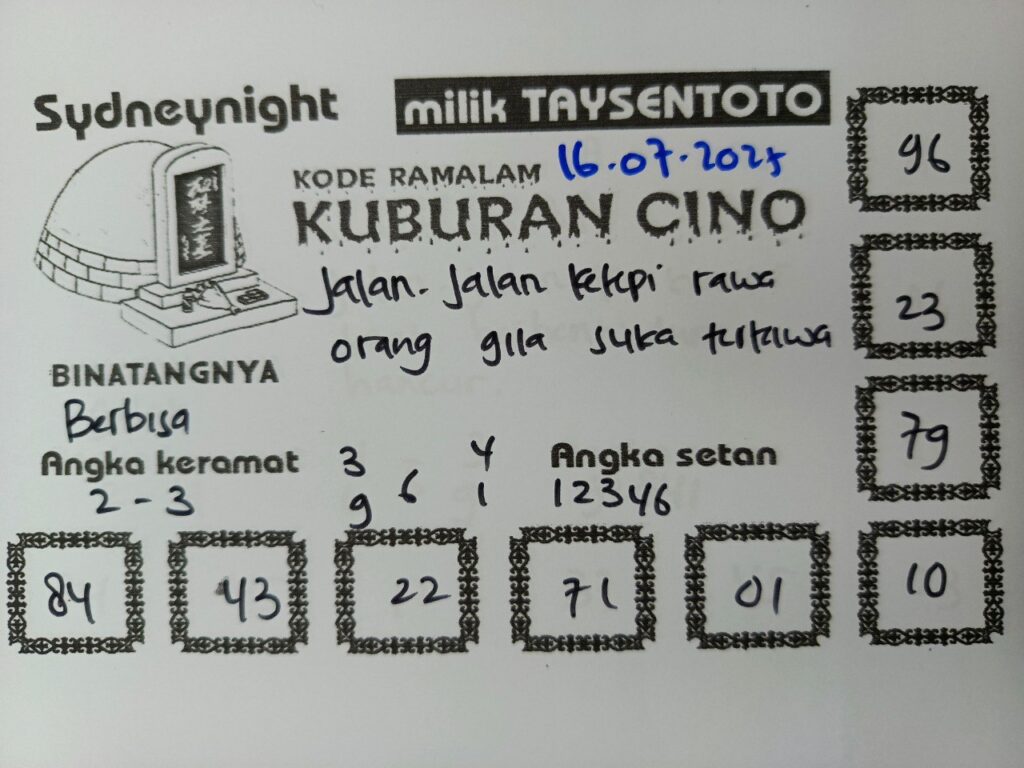 Sydneynight
milik TAYSENTOTO
96
KODE RAMALAM 16.07.2025
KUBURAN CINO
Jalan-Jalan ketepi rawa
23
orang gila suka tertawa
BINATANGNYA
Berbisa
79
Angka keramat 3 4 Angka setan
2-3 9 6 1 12346
84 43 22 71 01 10